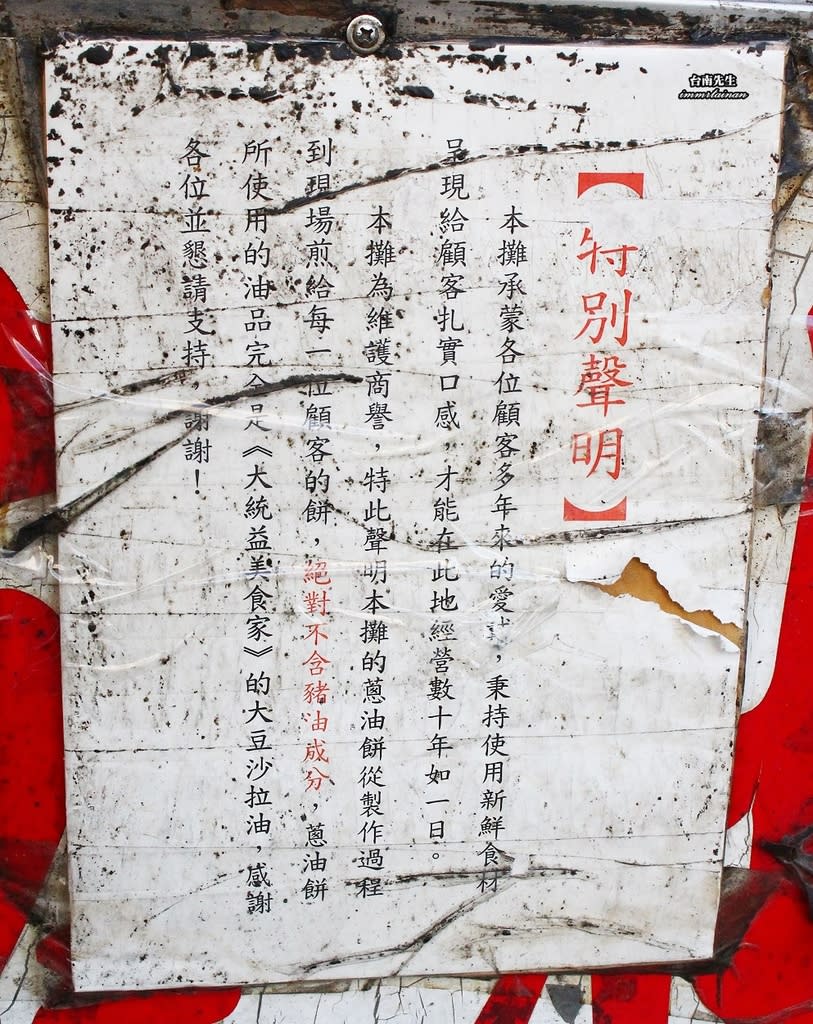 台南先生
immrtainan
【特別聲明】
本攤承蒙各位顧客多年來的愛，秉持使用新鮮食材
呈現給顧客扎實口感，才能在此地經營數十年如一日。
本攤為維護商譽，特此聲明本攤的蔥油餅從製作過程
到現場煎給每一位顧客的餅，絕對不含豬油成分，蔥油餅
所使用的油品完全是《大統益美食家》的大豆沙拉油，感謝
各位並懇請支持，謝謝！